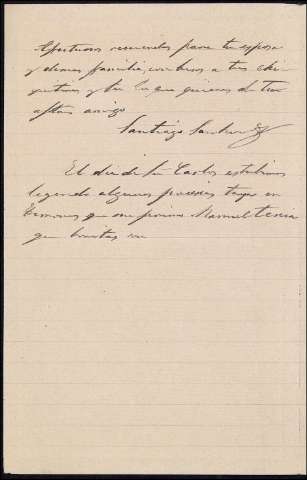 Afectuosos recuerdos para tu esposa
y demas familia, con besos a tus chi
quitines y tu lo que quieras de tu
afmo amigo
Santiago
El dia de San Carlos estubimos
leyendo algunas poesias tuyas en
que mi primo Manuel tenia
que bonitas son